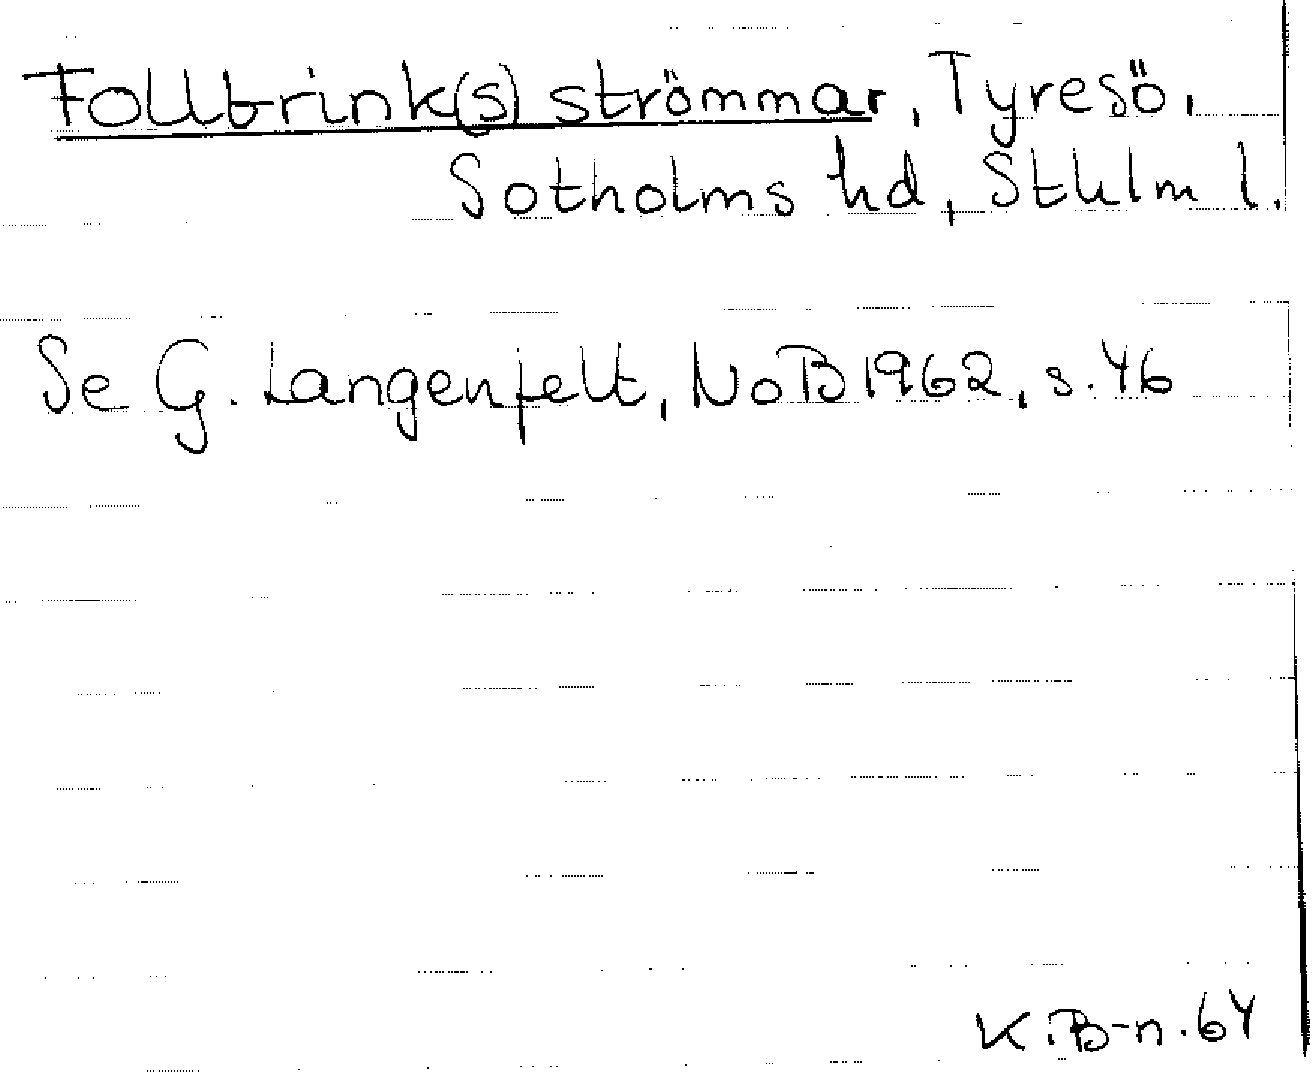 Follbrink(s) strömmar, Tyresö,
Sotholms hd, Sthlm l.
Se G. Langenfelt, NoB 1962, s. 46
K. B-n. 64